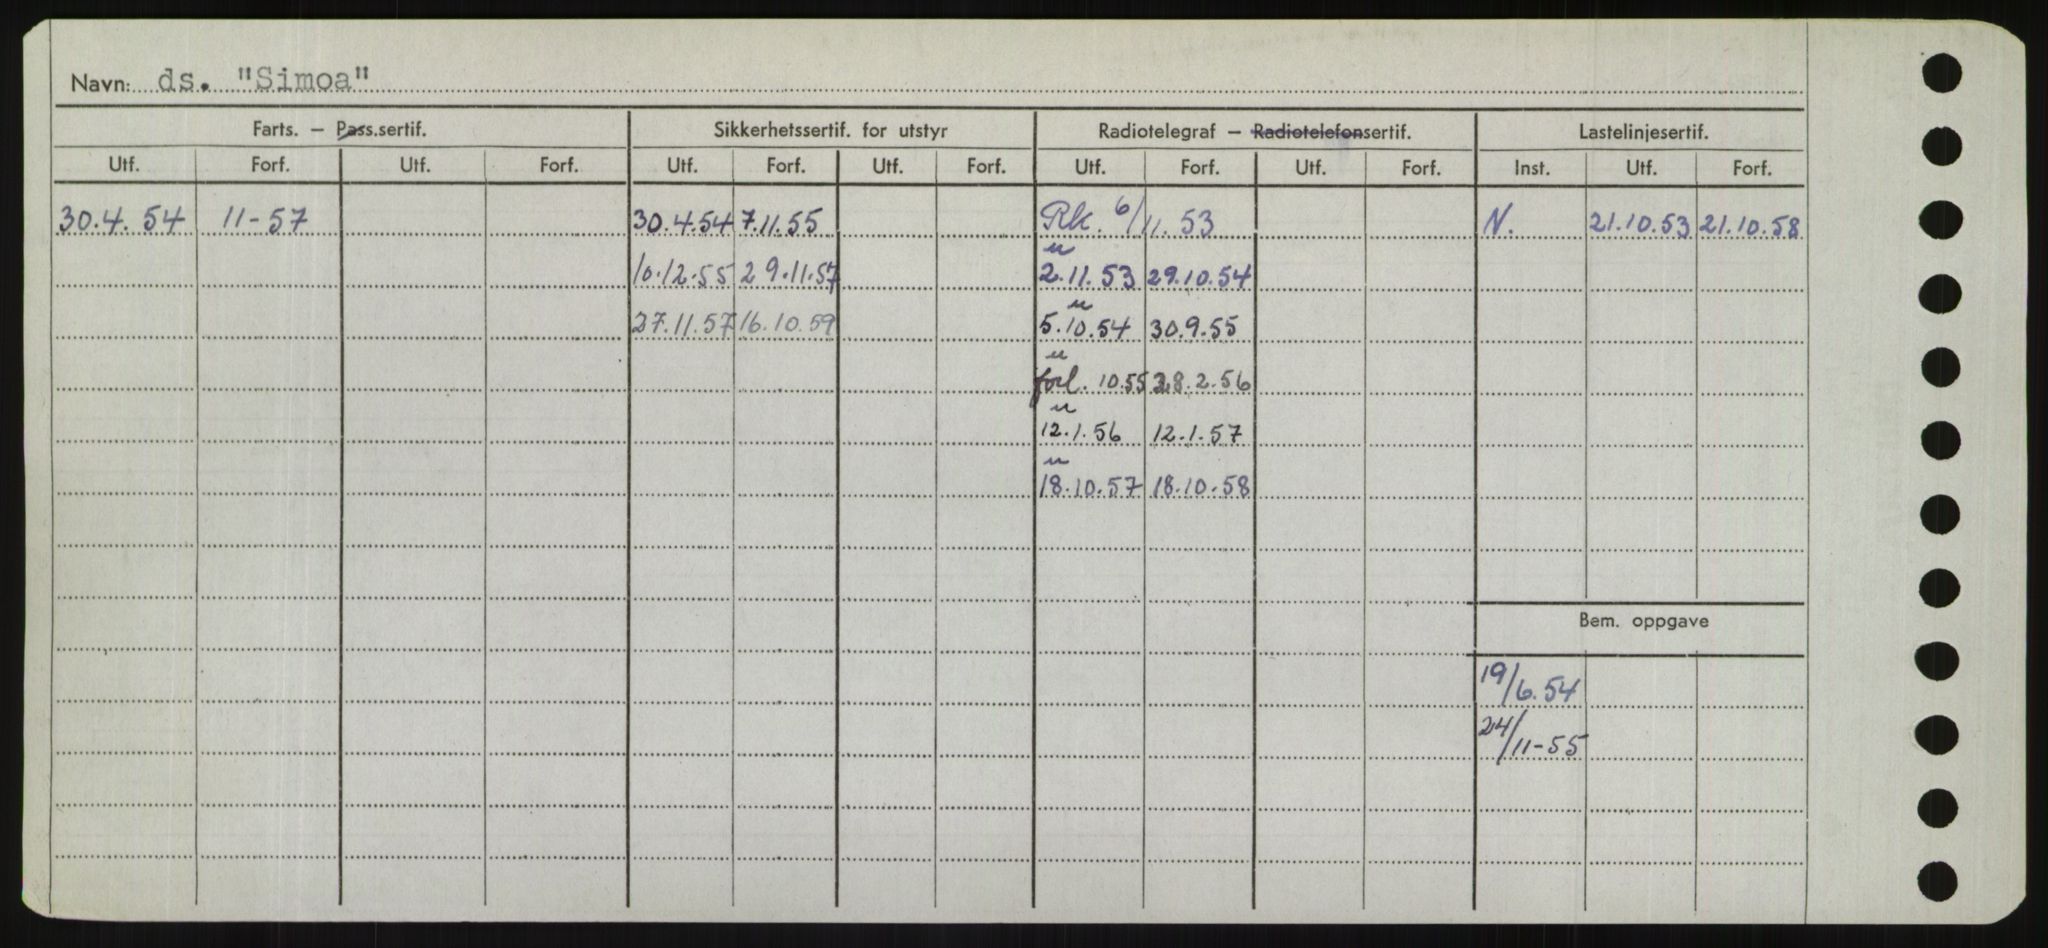 Navn: ds. "Simoa"
Farts. – Pass.sertif. Sikkerhetssertif. for utstyr Radiotelegraf – Radiotelefonsertif. Lastelinjesertif.
Utf. Forf. Utf. Forf. Utf. Forf. Utf. Forf. Utf. Forf. Utf. Forf. Inst. Utf. Forf.
30.4.54 11-57 30.4.54 7.11.55 Rk. 6/11.53 N. 21.10.53 21.10.58
u
10.12.55 29.11.57 2.11.53 29.10.54
u
27.11.57 16.10.59 5.10.54 30.9.55
u
forl. 10.55 28.2.56
u
12.1.56 12.1.57
u
18.10.57 18.10.58
Bem. oppgave
19/6.54
24/11-55